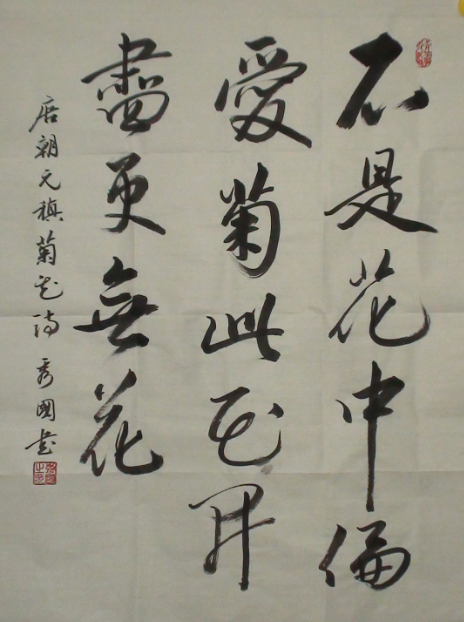 不是花中偏
愛菊此花開
盡更無花
唐朝元稹菊花詩 秀國書